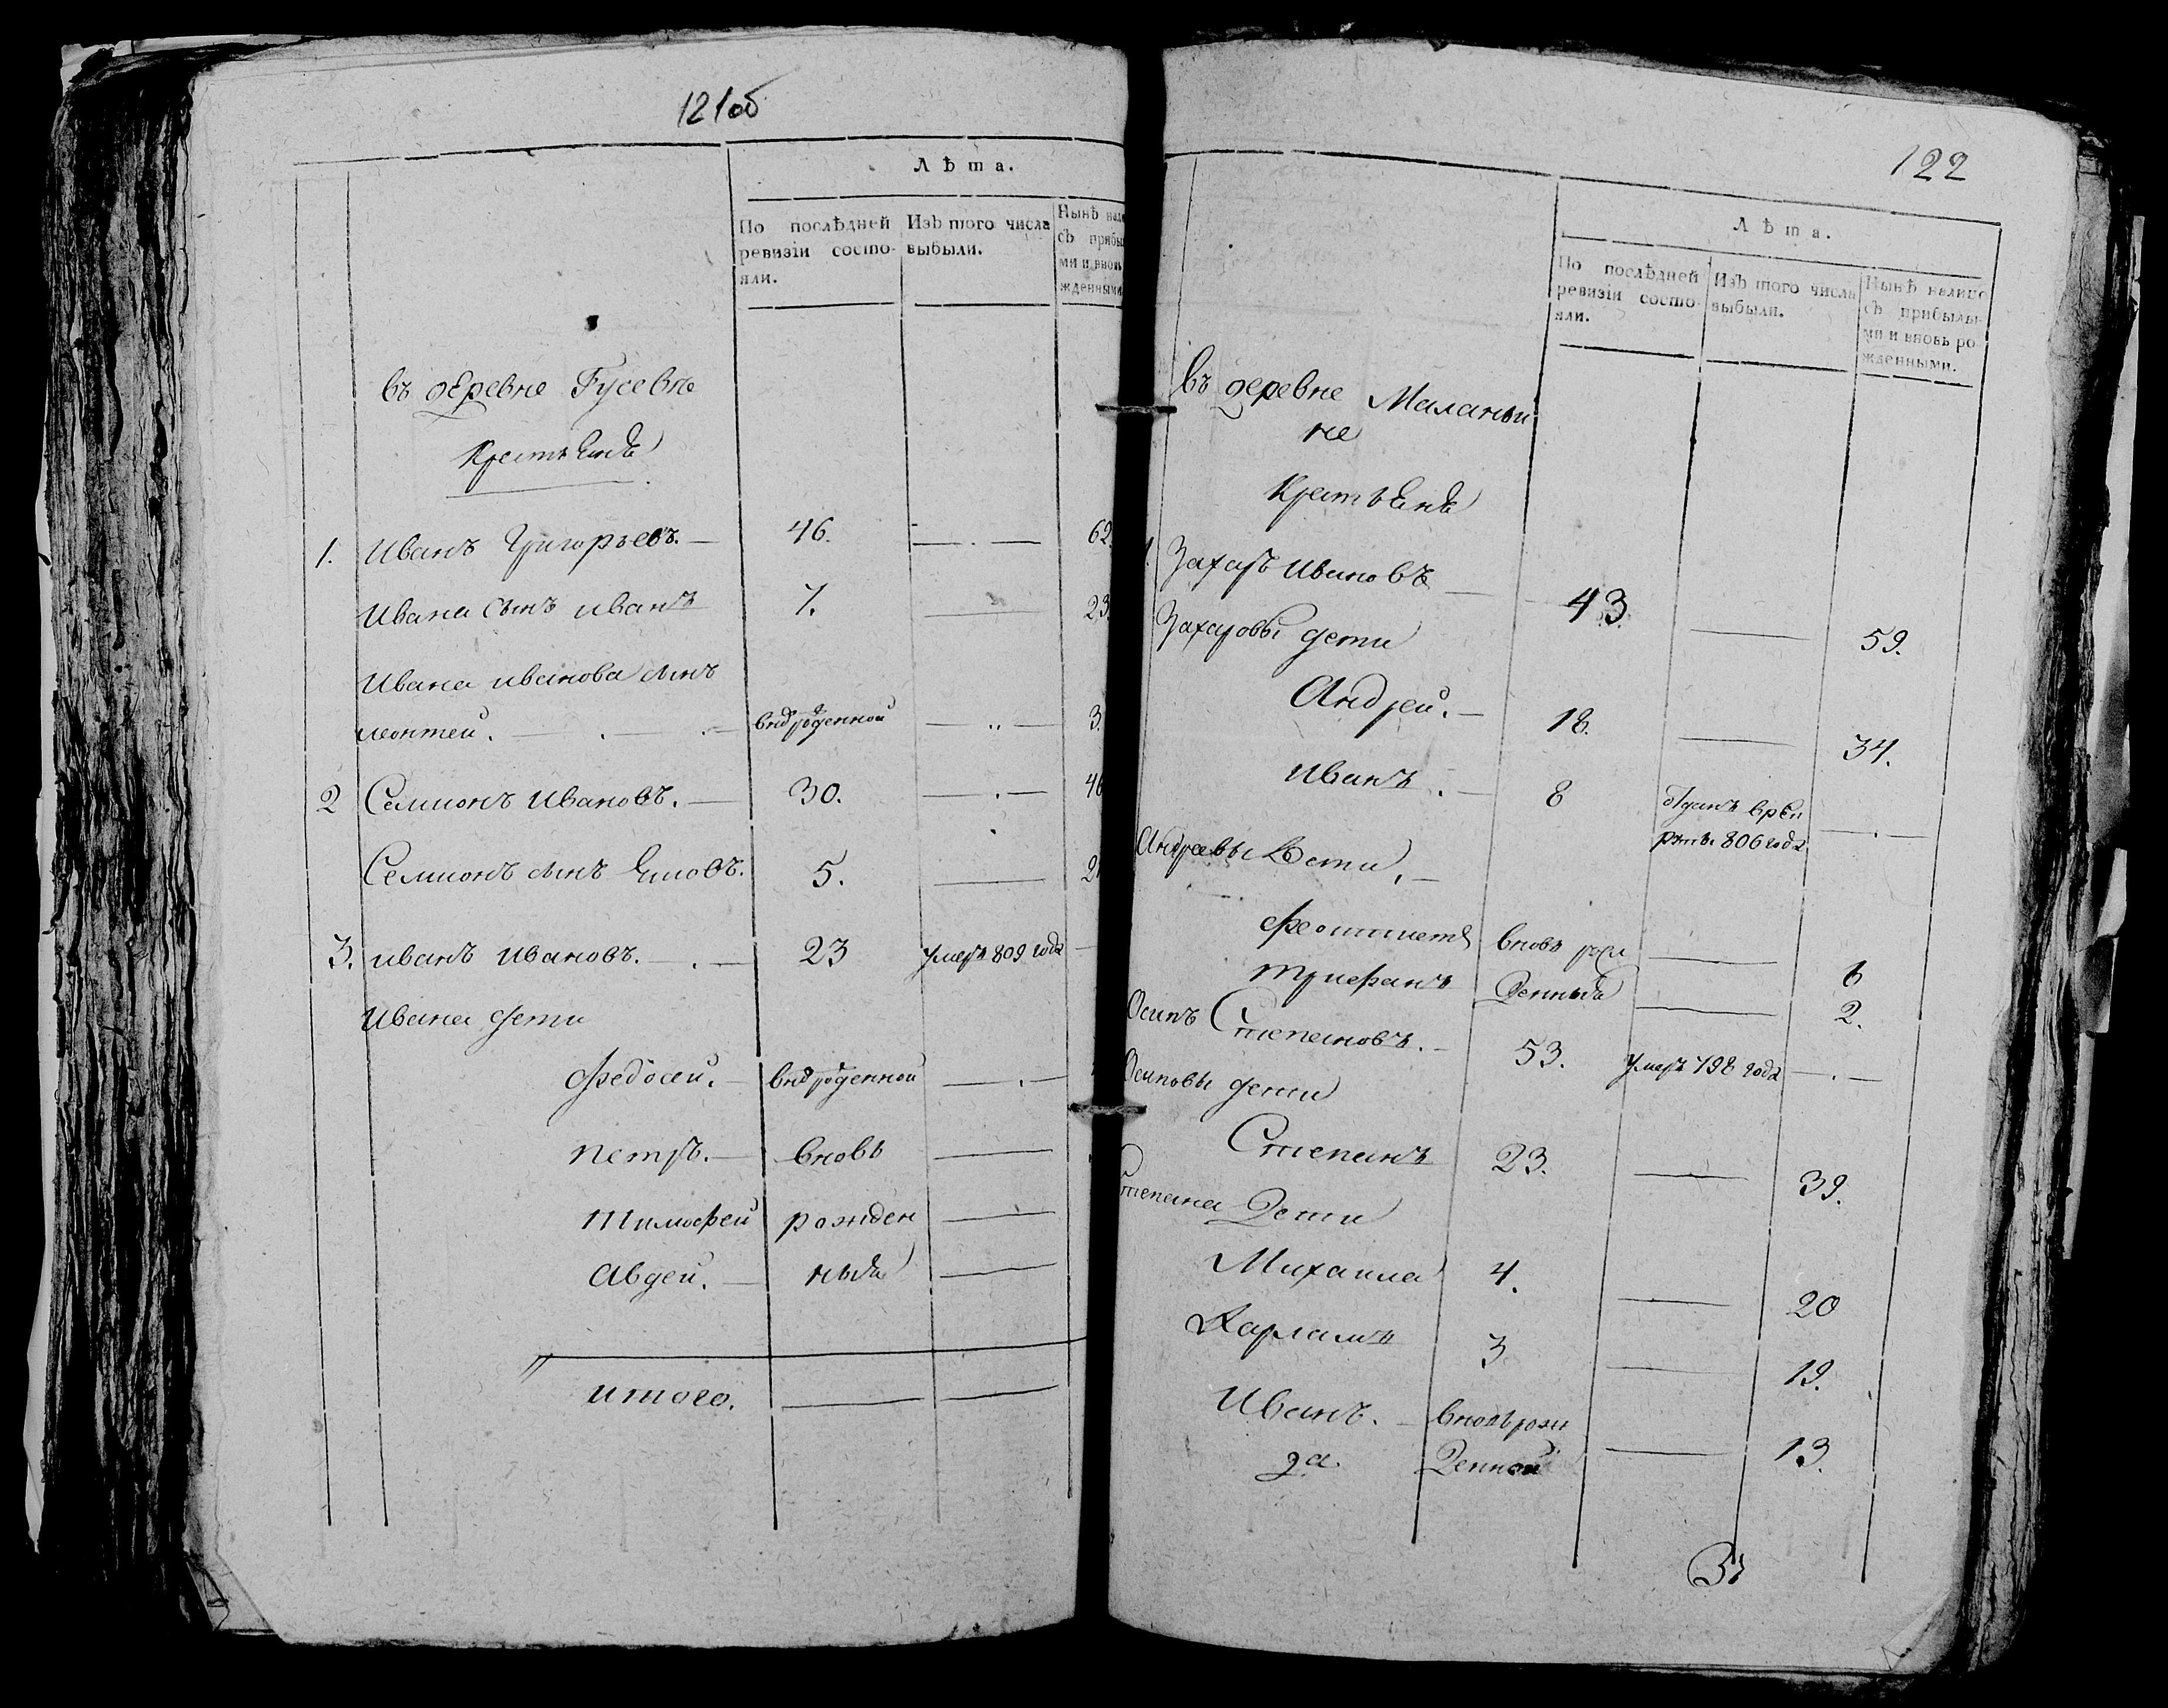 121 об
Лѣта.
По послѣдней ревизіи состо-яли.
Изъ того числа выбыли.
Нынѣ
съ
ми и
жденными
въ деревне Гусевке
Крестьенъ
1. Иванъ Григорьевъ. — 46. — 62.
Ивана сынъ иванъ 7. — 23.
Ивана иванова сынъ
леонтей. — вновьрожденной — 3.
2 Семионъ Ивановъ. — 30. — 46
Семионъ сынъ 5. — 2
3. иванъ Ивановъ. — 23 умеръ 809 года —
Ивана дети
Федосей. — вновьрожденной —
Петръ. — вновь —
Тимофей рожден —
Авдей. — ныя —
итого. — —
122
Лѣта.
По послѣдней ревизіи состо-яли.
Изъ того числа выбыли.
Нынѣ налицо съ прибылы-ми и вновь ро-жденными.
въ деревне Маланьи
не
Крестьенъ
1. Захаръ Ивановъ — 43 — 59.
Захаровы дети
Андрей. — 18. — 34.
Иванъ. — 8 отданъ врек
руты 806 года —
Андреевы Дети. —
Феоктистъ вновь рож — 6
Трифанъ Денныя — 2.
Осипъ Степановъ. — 53. умеръ 798 года —
Осиповы дети
Степанъ 23. — 39.
Степана Дети
Михаила 4. — 20
Харламъ 3 — 19.
Иванъ. — вновьрож
2й Денной — 13.